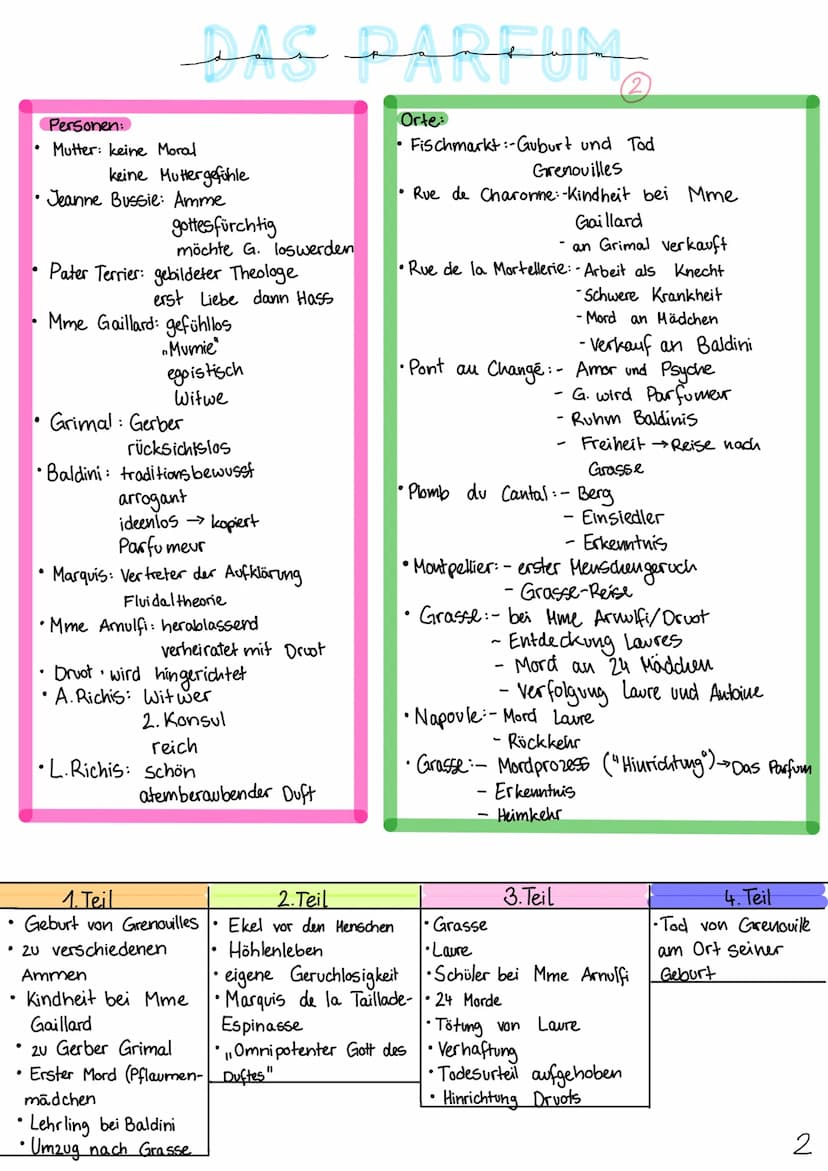 DAS PARFUM
das parfum
2
Personen:
• Mutter: keine Moral
keine Muttergefühle
• Jeanne Bussie: Amme
gottesfürchtig
möchte G. loswerden
• Pater Terrier: gebildeter Theologe
erst Liebe dann Hass
• Mme Gaillard: gefühllos
„Mumie"
egoistisch
Witwe
• Grimal: Gerber
rücksichtslos
• Baldini: traditionsbewusst
arrogant
ideenlos → kopiert
Parfumeur
• Marquis: Vertreter der Aufklärung
Fluidaltheorie
• Mme Arnulfi: herablassend
verheiratet mit Druot
• Druot: wird hingerichtet
• A. Richis: Witwer
2. Konsul
reich
• L. Richis: schön
atemberaubender Duft
Orte:
• Fischmarkt: - Guburt und Tod
Grenouilles
• Rue de Charonne: - Kindheit bei Mme
Gaillard
- an Grimal verkauft
• Rue de la Mortellerie: - Arbeit als Knecht
- Schwere Krankheit
- Mord an Mädchen
- Verkauf an Baldini
• Pont au Changé: - Amor und Psyche
- G. wird Parfumeur
- Ruhm Baldinis
- Freiheit → Reise nach
Grasse
• Plomb du Cantal: - Berg
- Einsiedler
- Erkenntnis
• Montpellier: - erster Menschengeruch
- Grasse-Reise
• Grasse: - bei Mme Arnulfi/Druot
- Entdeckung Laures
- Mord an 24 Mädchen
- Verfolgung Laure und Antoine
• Napoule: - Mord Laure
- Rückkehr
• Grasse: - Mordprozess ("Hinrichtung") → Das Parfum
- Erkenntnis
- Heimkehr
1. Teil
• Geburt von Grenouilles
• zu verschiedenen
Ammen
• Kindheit bei Mme
Gaillard
• zu Gerber Grimal
• Erster Mord (Pflaumen-
mädchen
• Lehrling bei Baldini
• Umzug nach Grasse
2. Teil
• Ekel vor den Menschen
• Höhlenleben
• eigene Geruchlosigkeit
• Marquis de la Taillade-
Espinasse
• „Omnipotenter Gott des
Duftes"
3. Teil
• Grasse
• Laure
• Schüler bei Mme Arnulfi
• 24 Morde
• Tötung von Laure
• Verhaftung
• Todesurteil aufgehoben
• Hinrichtung Druots
4. Teil
• Tod von Grenouille
am Ort seiner
Geburt
2